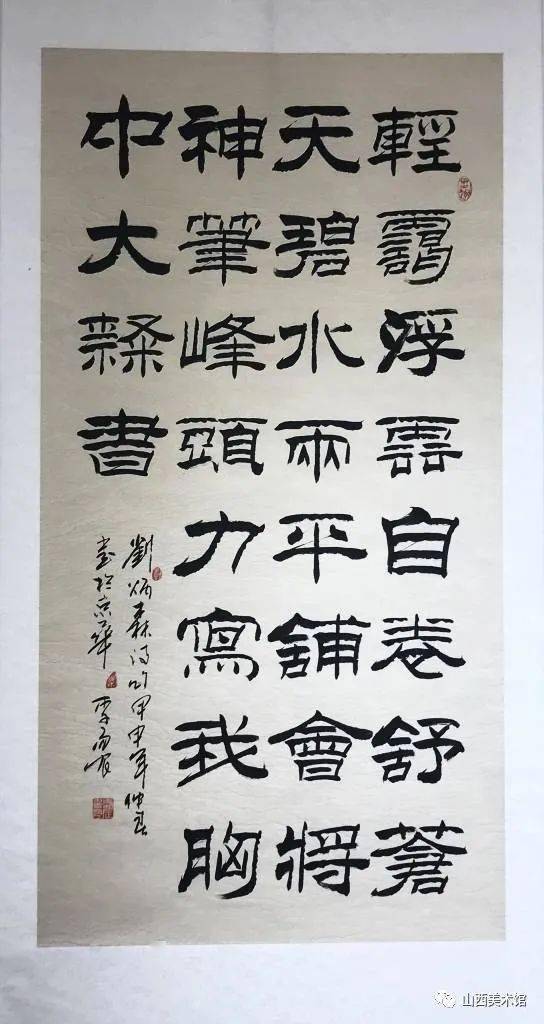 輕靄浮雲自卷舒蒼
天碧水兩平舖會將
神筆峰頭力寫我胸
中大隸書
劉炳森詩 甲申年仲春
書於京華
山西美术馆